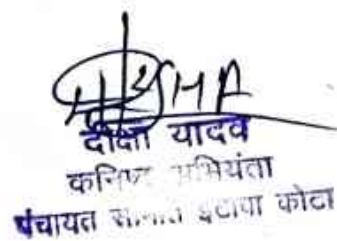 दीक्षा यादव
कनिष्ठ अभियंता
पंचायत समिति इटावा कोटा